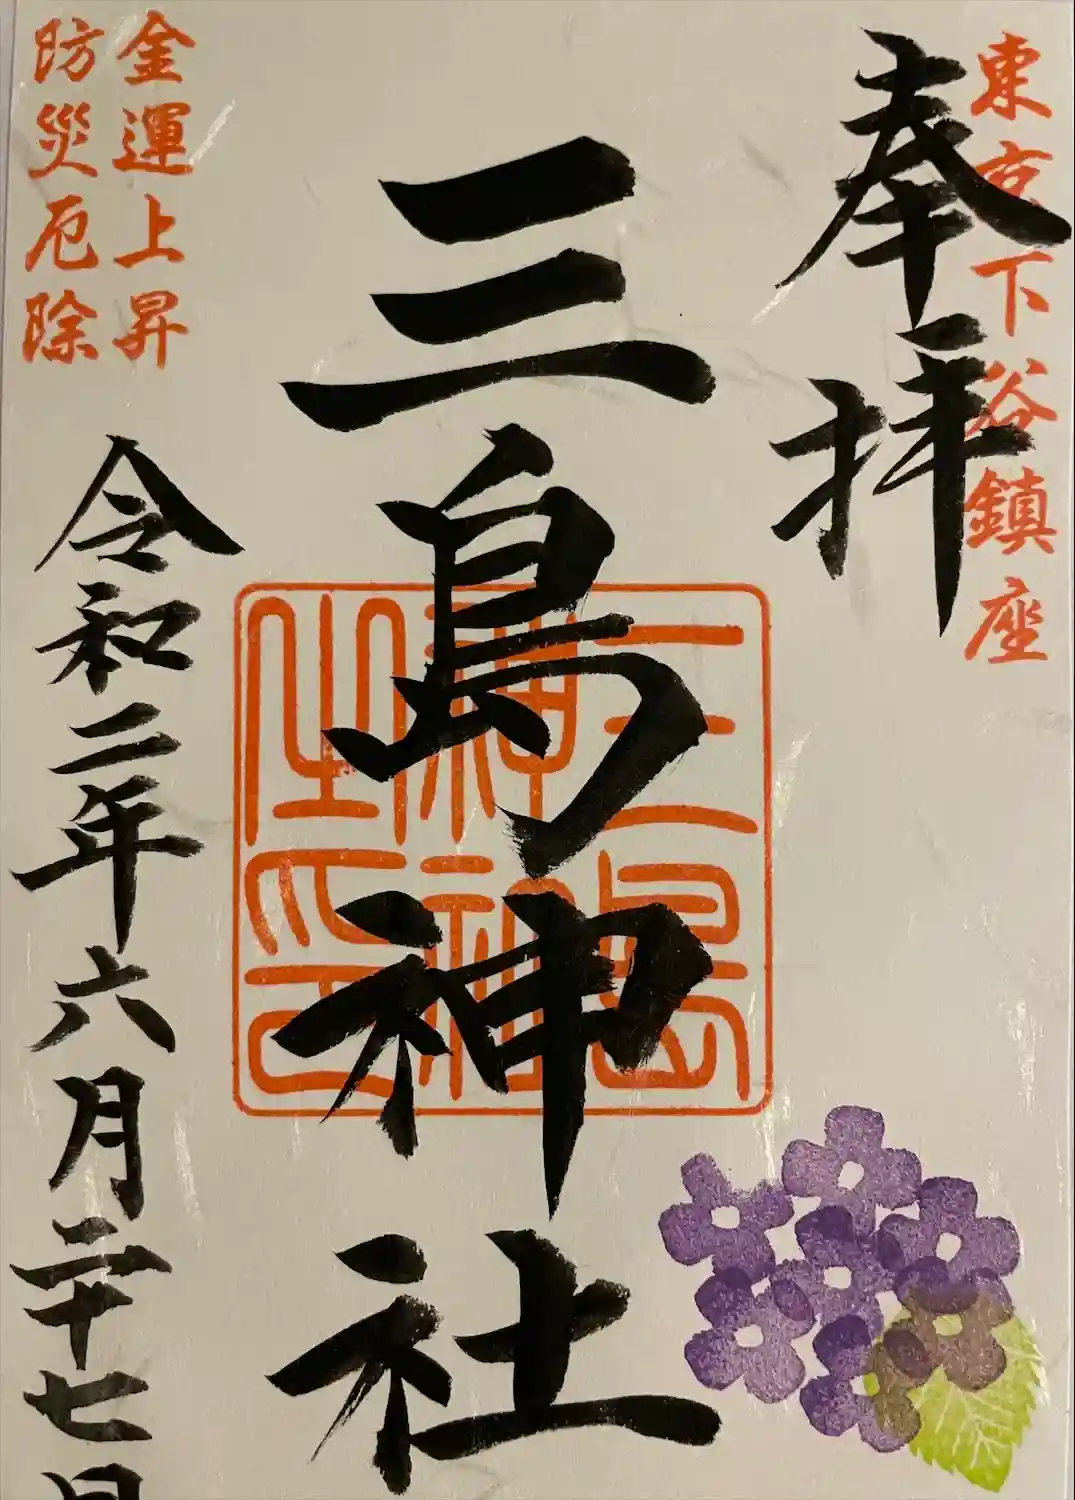 東京下谷鎮座
奉拝
三島神社
三島
神社
之印
金運上昇
防災厄除
令和二年六月二十七日